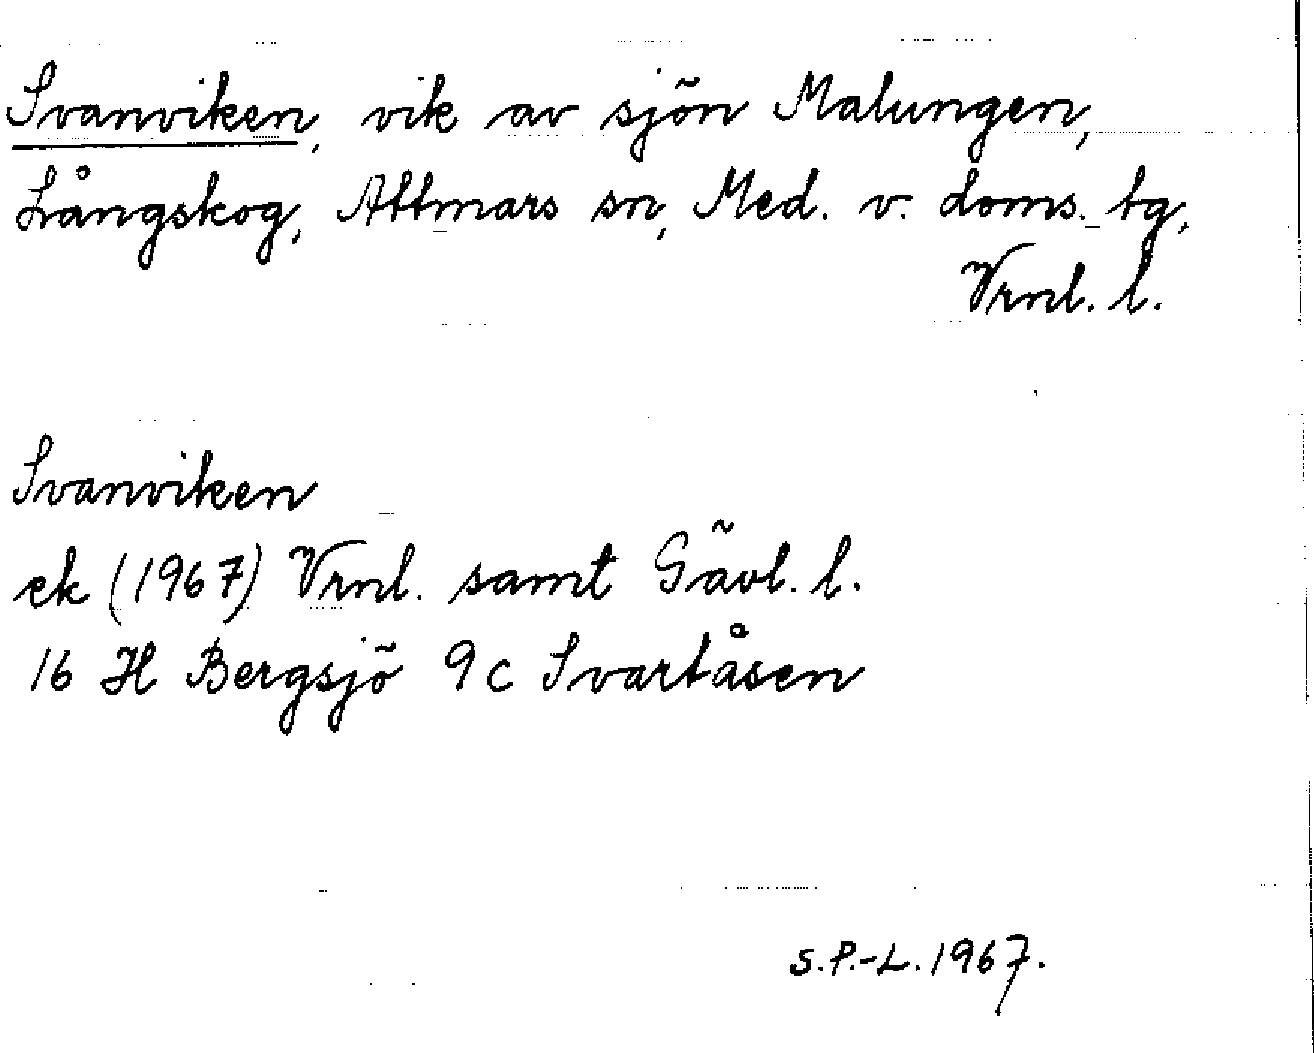 Svanviken, vik av sjön Malungen,
Långskog, Attmars sn, Med. v. doms. tg,
Vrnl. l.
Svanviken
ek (1967) Vrnl. samt Gävl. l.
16 H Bergsjö 9 c Svartåsen
S.P.-L. 1967.